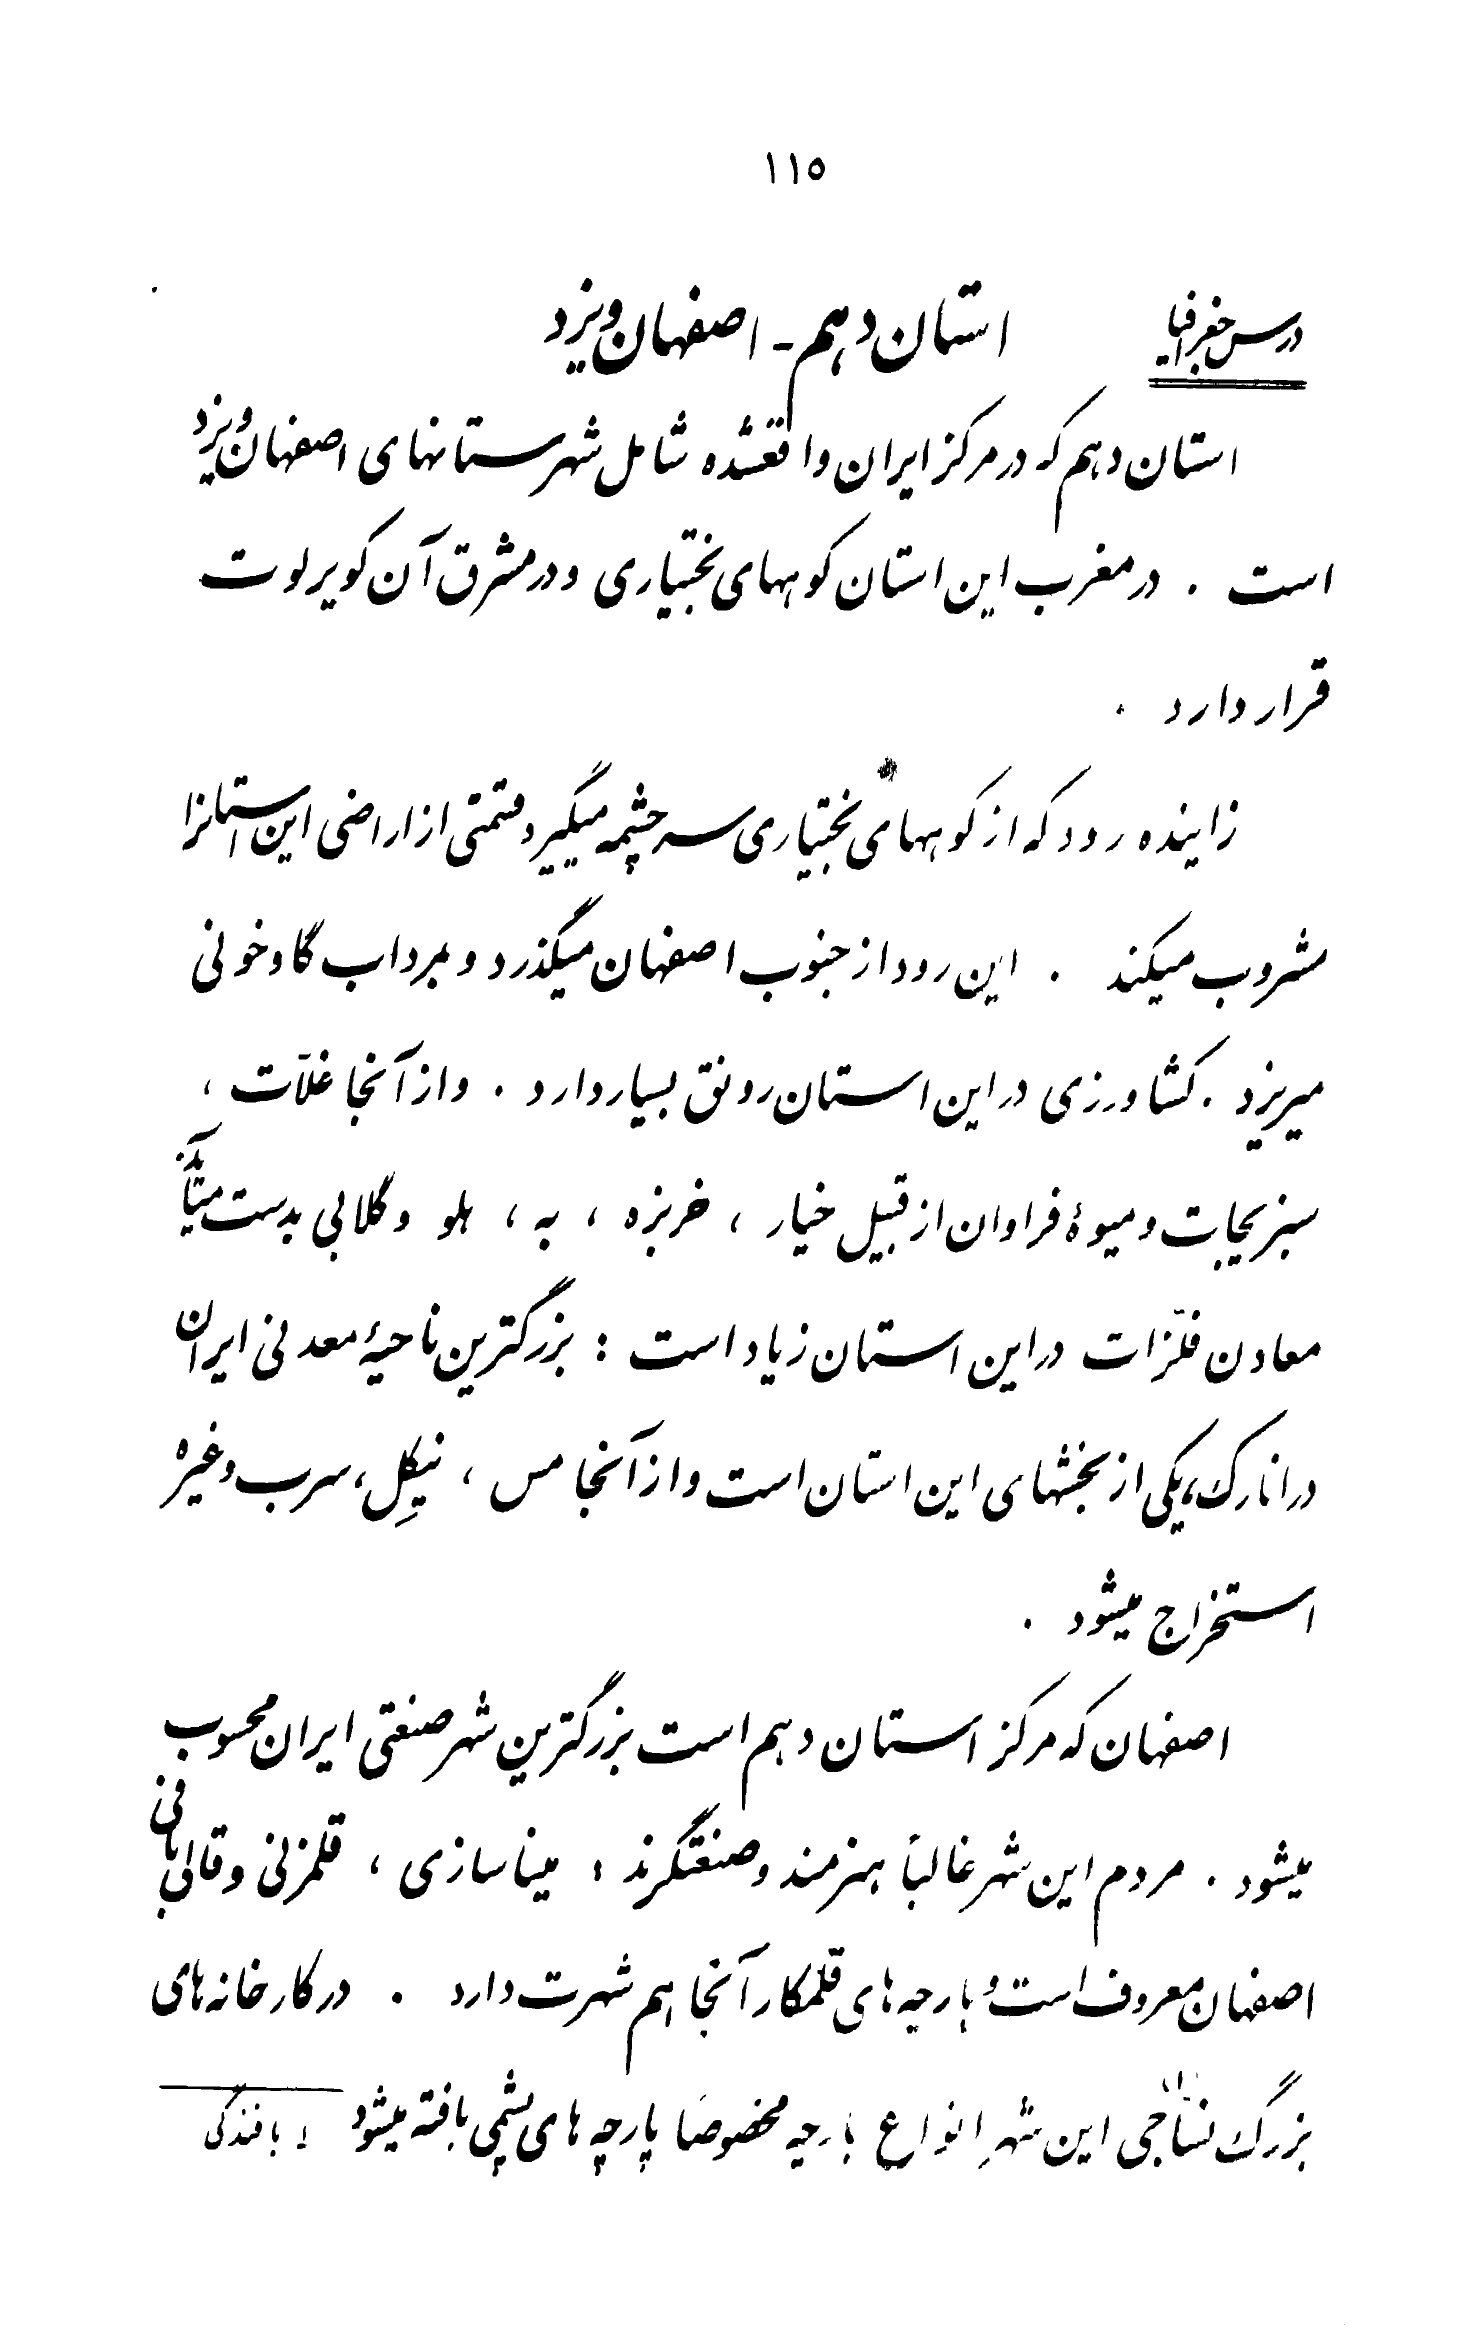 ۱۱۵
درس جغرافیا
استان دهم - اصفهان و یزد
استان دهم که در مرکز ایران واقعشده شامل شهرستانهای اصفهان و یزد
است . در مغرب این استان کوههای بختیاری و در مشرق آن کویر لوت
قرار دارد .
زاینده رود که از کوههای بختیاری سرچشمه میگیرد قسمتی از اراضی این استانرا
مشروب میکند . این رود از جنوب اصفهان میگذرد و بمرداب گاوخونی
میریزد . کشاورزی در این استان رونق بسیار دارد . و از آنجا غلّات ،
سبزیجات و میوهٔ فراوان از قبیل خیار ، خربزه ، به ، هلو و گلابی بدست میآید.
معادن فلزّات در این استان زیاد است : بزرگترین ناحیهٔ معدنی ایران
در انارک، یکی از بخشهای این استان است و از آنجا مس ، نیکِل، سرب و غیره
استخراج میشود .
اصفهان که مرکز استان دهم است بزرگترین شهر صنعتی ایران محسوب
میشود . مردم این شهر غالباً هنرمند و صنعتگرند ، میناسازی ، قلمزنی و قالی‌بافی
اصفهان معروف است و پارچه های قلمکار آنجا هم شهرت دارد . در کارخانه های
بزرگ نسّاجی۱ این شهر انواع پارچه مخصوصاً پارچه های پشمی بافته میشود
۱. بافندگی